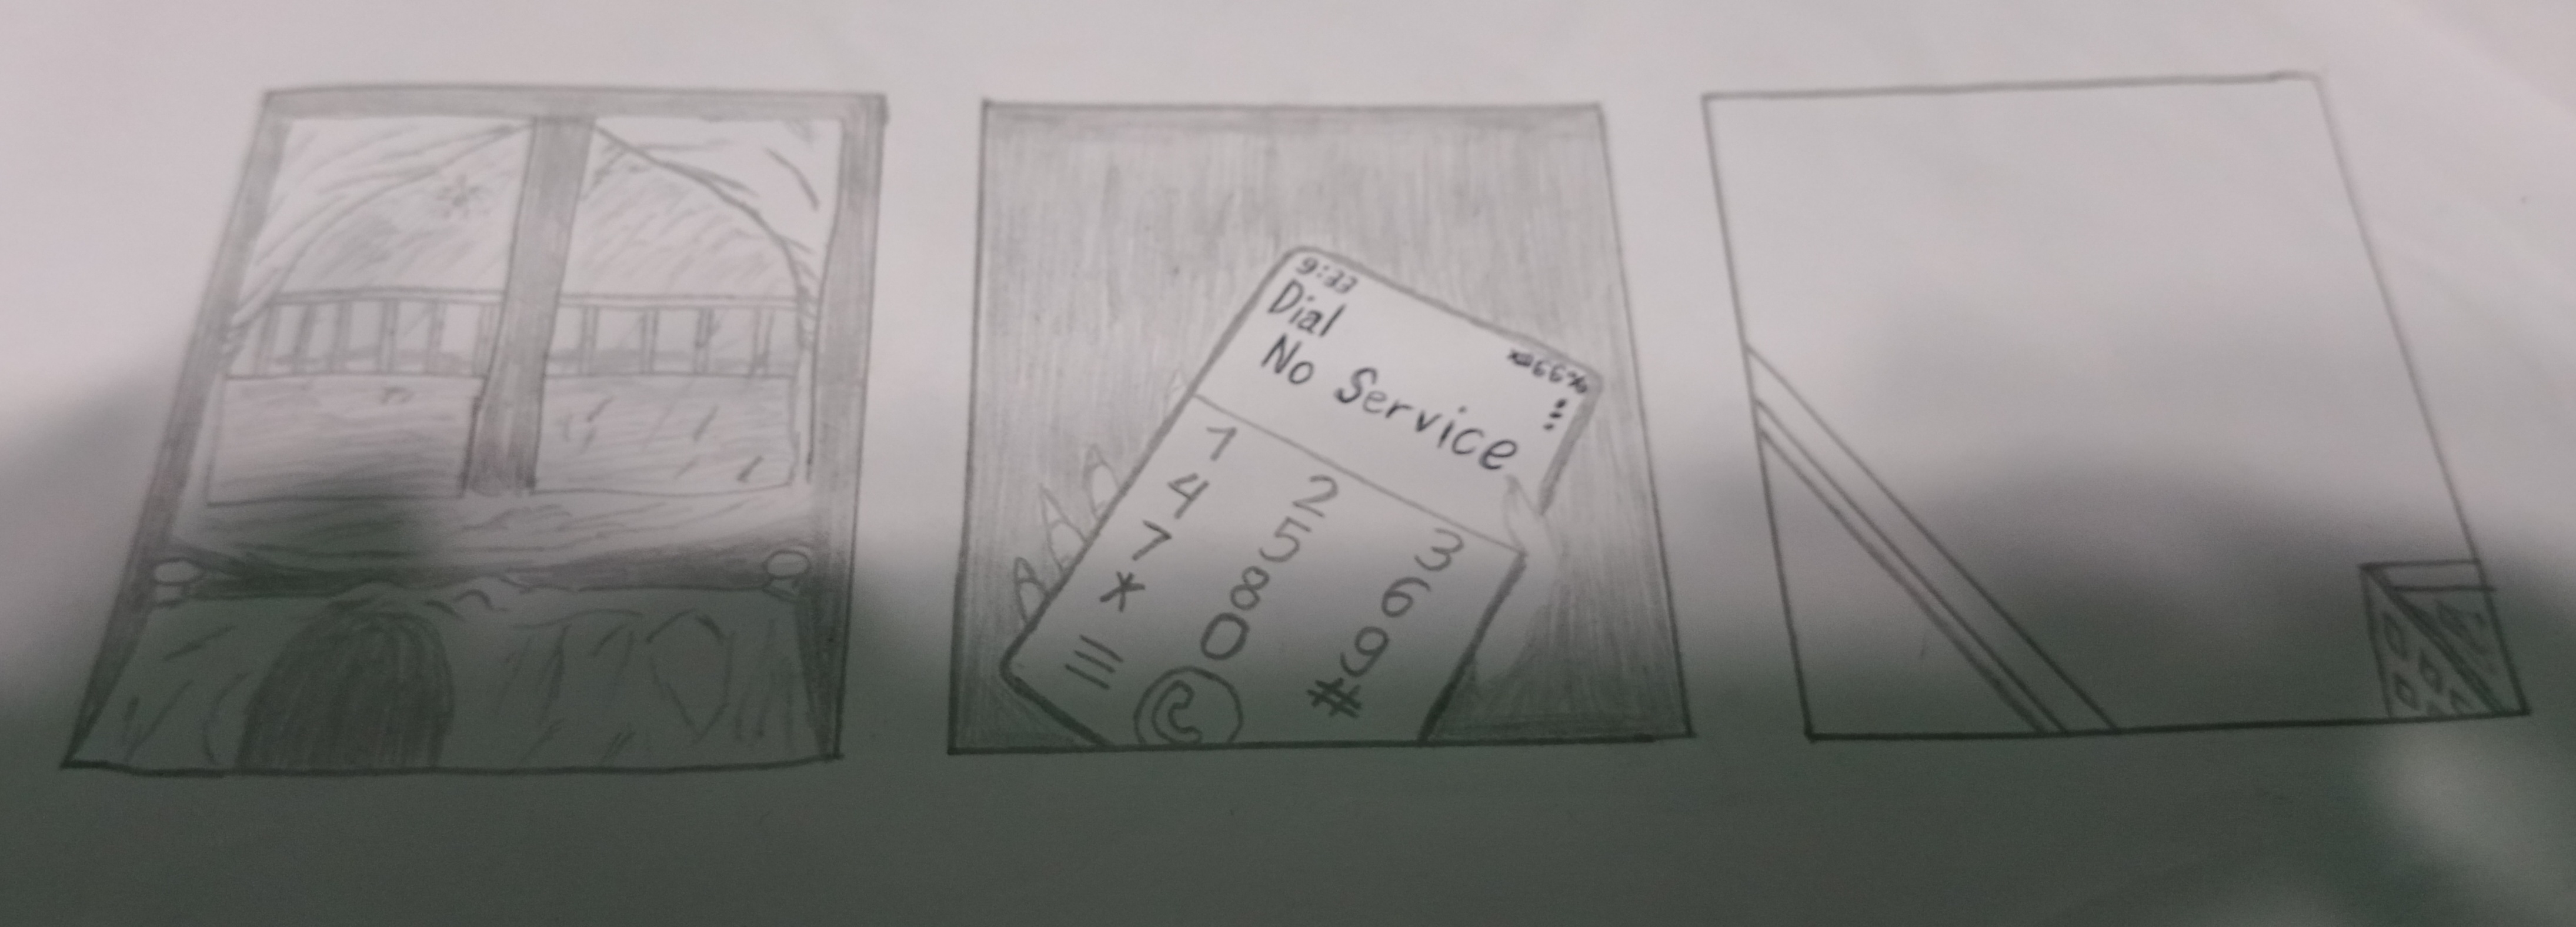 9:33
66%
Dial
No Service
1 2 3
4 5 6
7 8 9
* 0 #